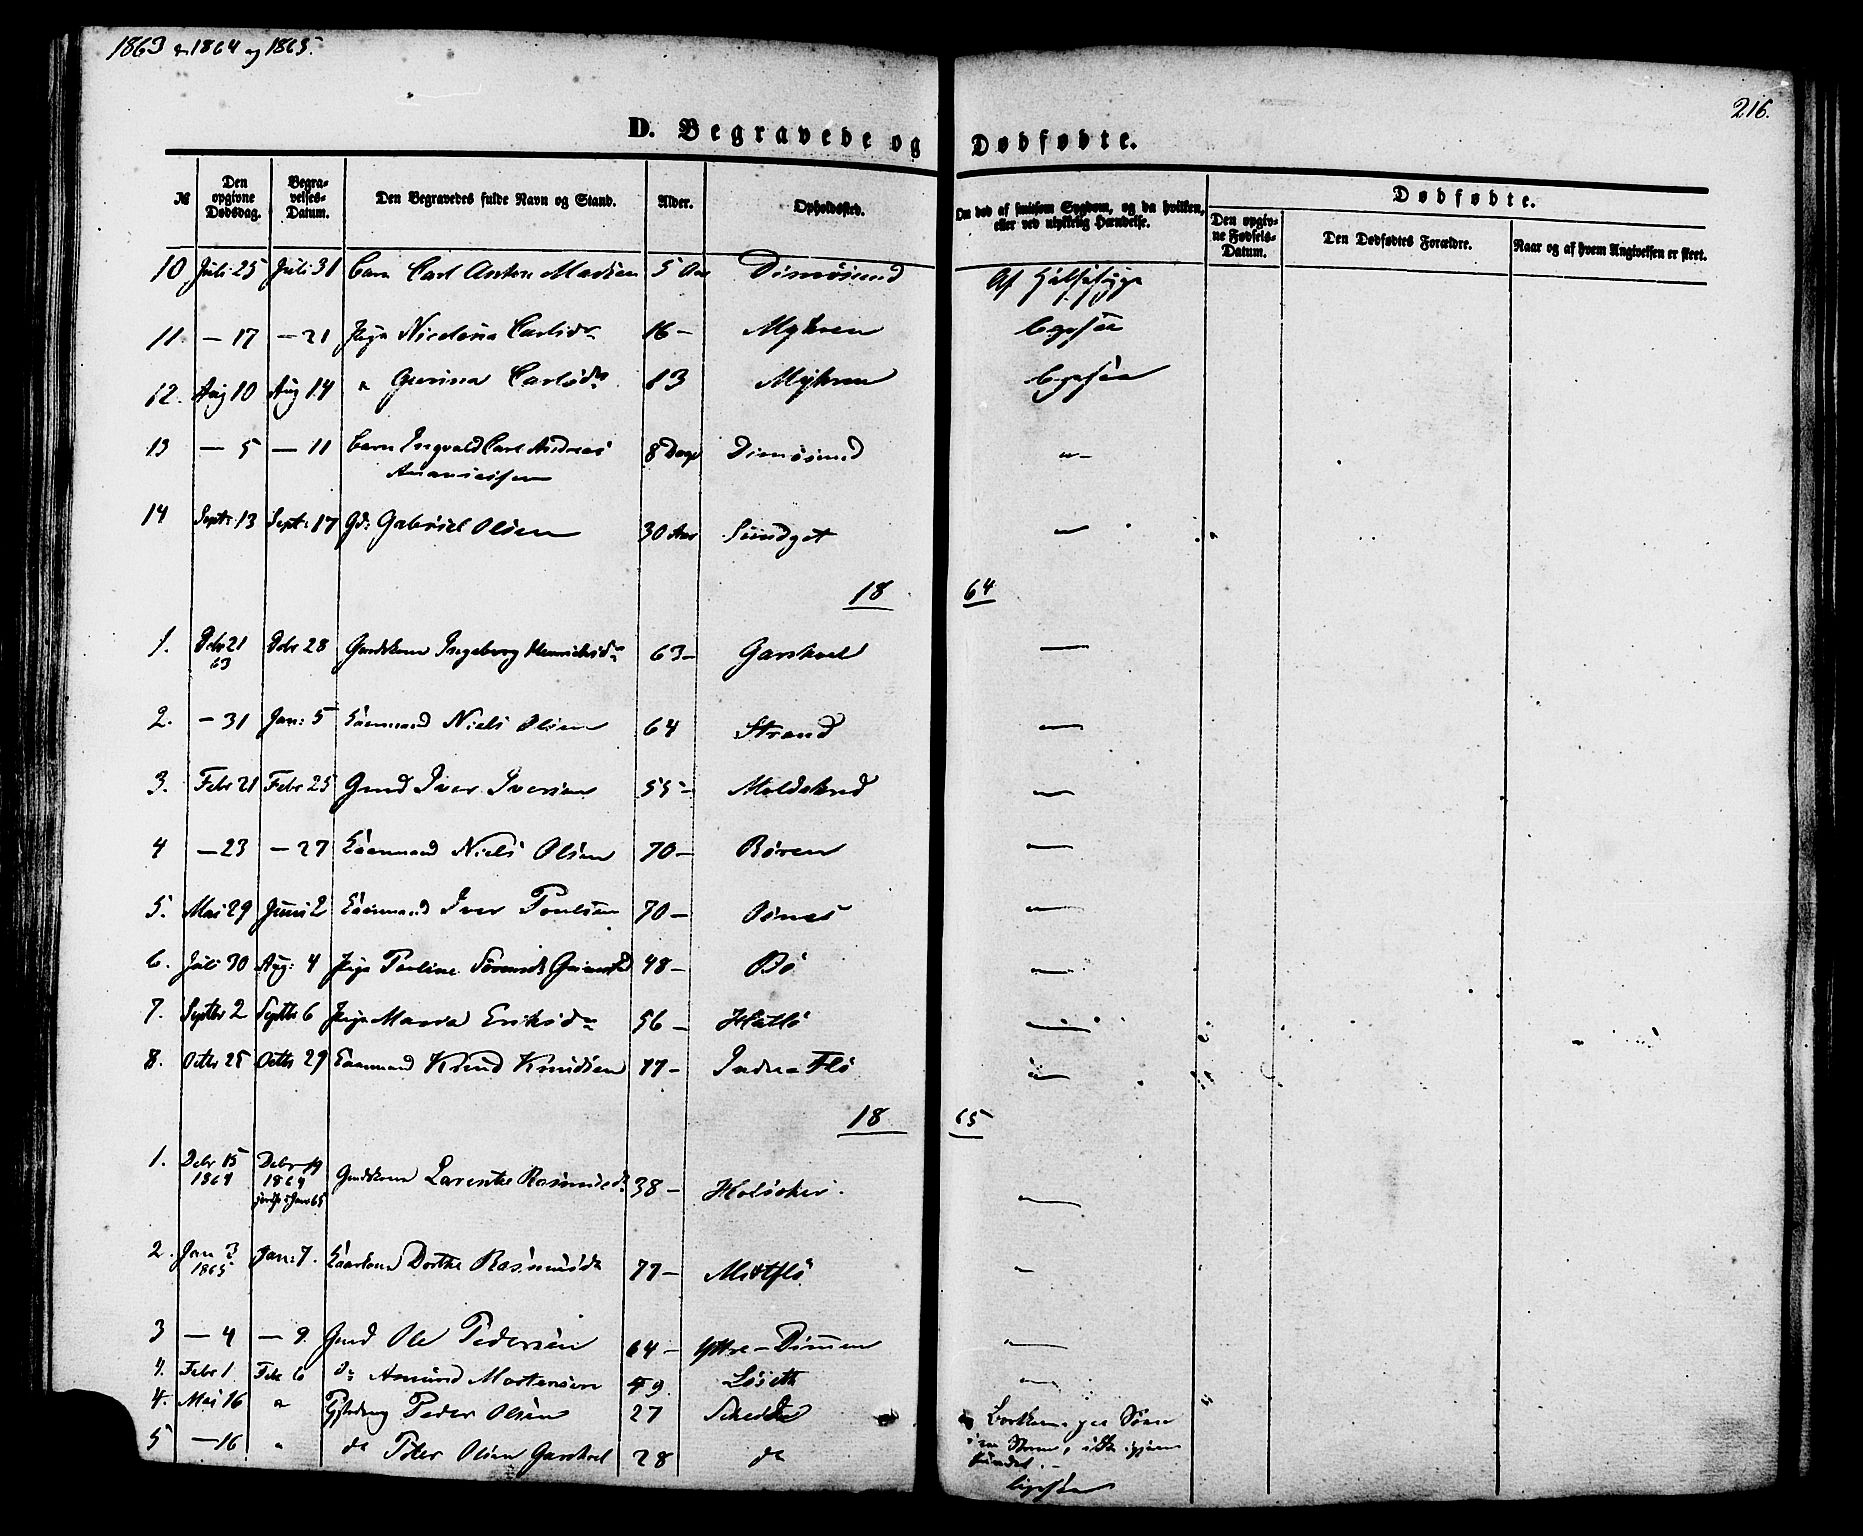 1863 & 1864 og 1865.
216.
D. Begravede og Dødfødte.
№ Den opgivne Dødsdag. Begravelses-Datum. Den Begravedes fulde Navn og Stand. Alder. Opholdssted. Om død af smitsom Sygdom, og da hvilken, eller ved ulykkelig Hændelse. Dødfødte.
Den opgivne Fødsels-Datum. Den Dødfødtes Forældre. Naar og af hvem Angivelsen er skeet.
10 Juli 25 Juli 31 Barn Carl Anton Madsen 5 Aar Dimøsund Af Halssyge
11. — 17 — 21 Pige Nicolena Carlsdr 16 — Myhren ligesaa
12. Aug 10 Aug 14 " Gurina Carlsdr 13 Myhren ligesaa
13 — 5 — 11 Barn Ingvald Carl Andreas 8 Dage Dimøsund "
Ananiassen
14 Sept: 13 Sept: 17 Gd: Gabriel Olsen 30 Aar Sundgot —
18 64
1. Debr 21 Debr 28 Gmdskone Ingeborg Henriksdr 63 — Garshol —
63
2. — 31 Jan: 5 Kaarmand Niels Olsen 64 Strand —
3. Febr 21 Febr 25 Gmd Iver Iversen 55 — Moldskred —
4 — 23 — 27 Kaarmand Niels Olsen 70 — Røren —
5. Mai 29 Juni 2 Kaarmand Iver Poulsen 70 — Osnes —
6. Juli 30 Aug: 4 Pige Pauline 48 — Bø —
7. Septbr 2 Septbr 6 Pige Maria Eriksdr 56 — Hatlø —
8. Octbr 25 Octbr 29 Kaarmand Knud Knudsen 77 — Indre Flø —
18 65
1. Debr 15 Debr 19 Gmdskone Larentse Rasmusdr 38 — Holseker. —
1864 1864
2. Jan 3 Jan: 7. Kaarkone Dorthe Rasmusdr 77 — Midtflø —
1865
3 — 4 — 9 Gmd Ole Pedersen 64 — Yttre-Dimmen —
4. Febr 1 Febr 6 do Amund Mortensen 49 Løseth —
4. Mai 16 " Peder Olsen 27 Bortkommen paa Søen
5 — 16 " do Peter Olsen Garshol 28 do i en Storm, ikke igjen
fundet. —
ligesaa